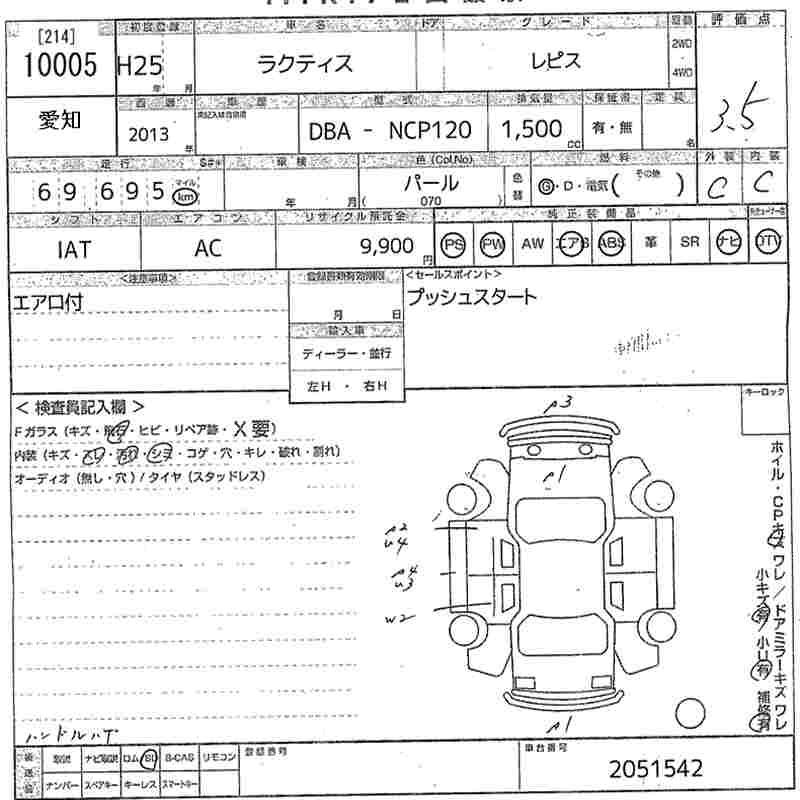 [214]
10005
初度登録
車名
ドア
グレード
H25
年 月
ラクティス
レピス
2WD
4WD
評価点
3.5
愛知
2013
年
車歴
型式
DBA - NCP120
排気量
1,500
cc
保証書
有・無
定員
名
走行
車検
色(Col.No)
燃料
外装
内装
69 695
マイル
km
年 月
パール
( 070 )
色替
G・D・電気( その他 )
C
C
シフト
エアコン
リサイクル預託金
純正装備品
IAT
AC
9,900
円
PS
PW
AW
エアB
ABS
革
SR
ナビ
DTV
<注意事項>
<セールスポイント>
エアロ付
月 日
プッシュスタート
輸入車
ディーラー・並行
左H ・ 右H
キーロック
< 検査員記入欄 >
Fガラス(キズ・飛石・ヒビ・リペア跡・X要)
内装(キズ・スレ・汚れ・シミ・コゲ・穴・キレ・破れ・割れ)
オーディオ(無し・穴)/タイヤ(スタッドレス)
P3
P1
P2
U4
P4
U3
W2
P1
ホイル・CPキズ ワレ/ドアミラーキズ ワレ
小キズ有/小U有 補修有
ハンドルハゲ
後送品
取説
ナビ取説
ロム・SD
B-CAS
リモコン
ナンバー
スペアキー
キーレス
スマートキー
登録番号
車台番号
2051542